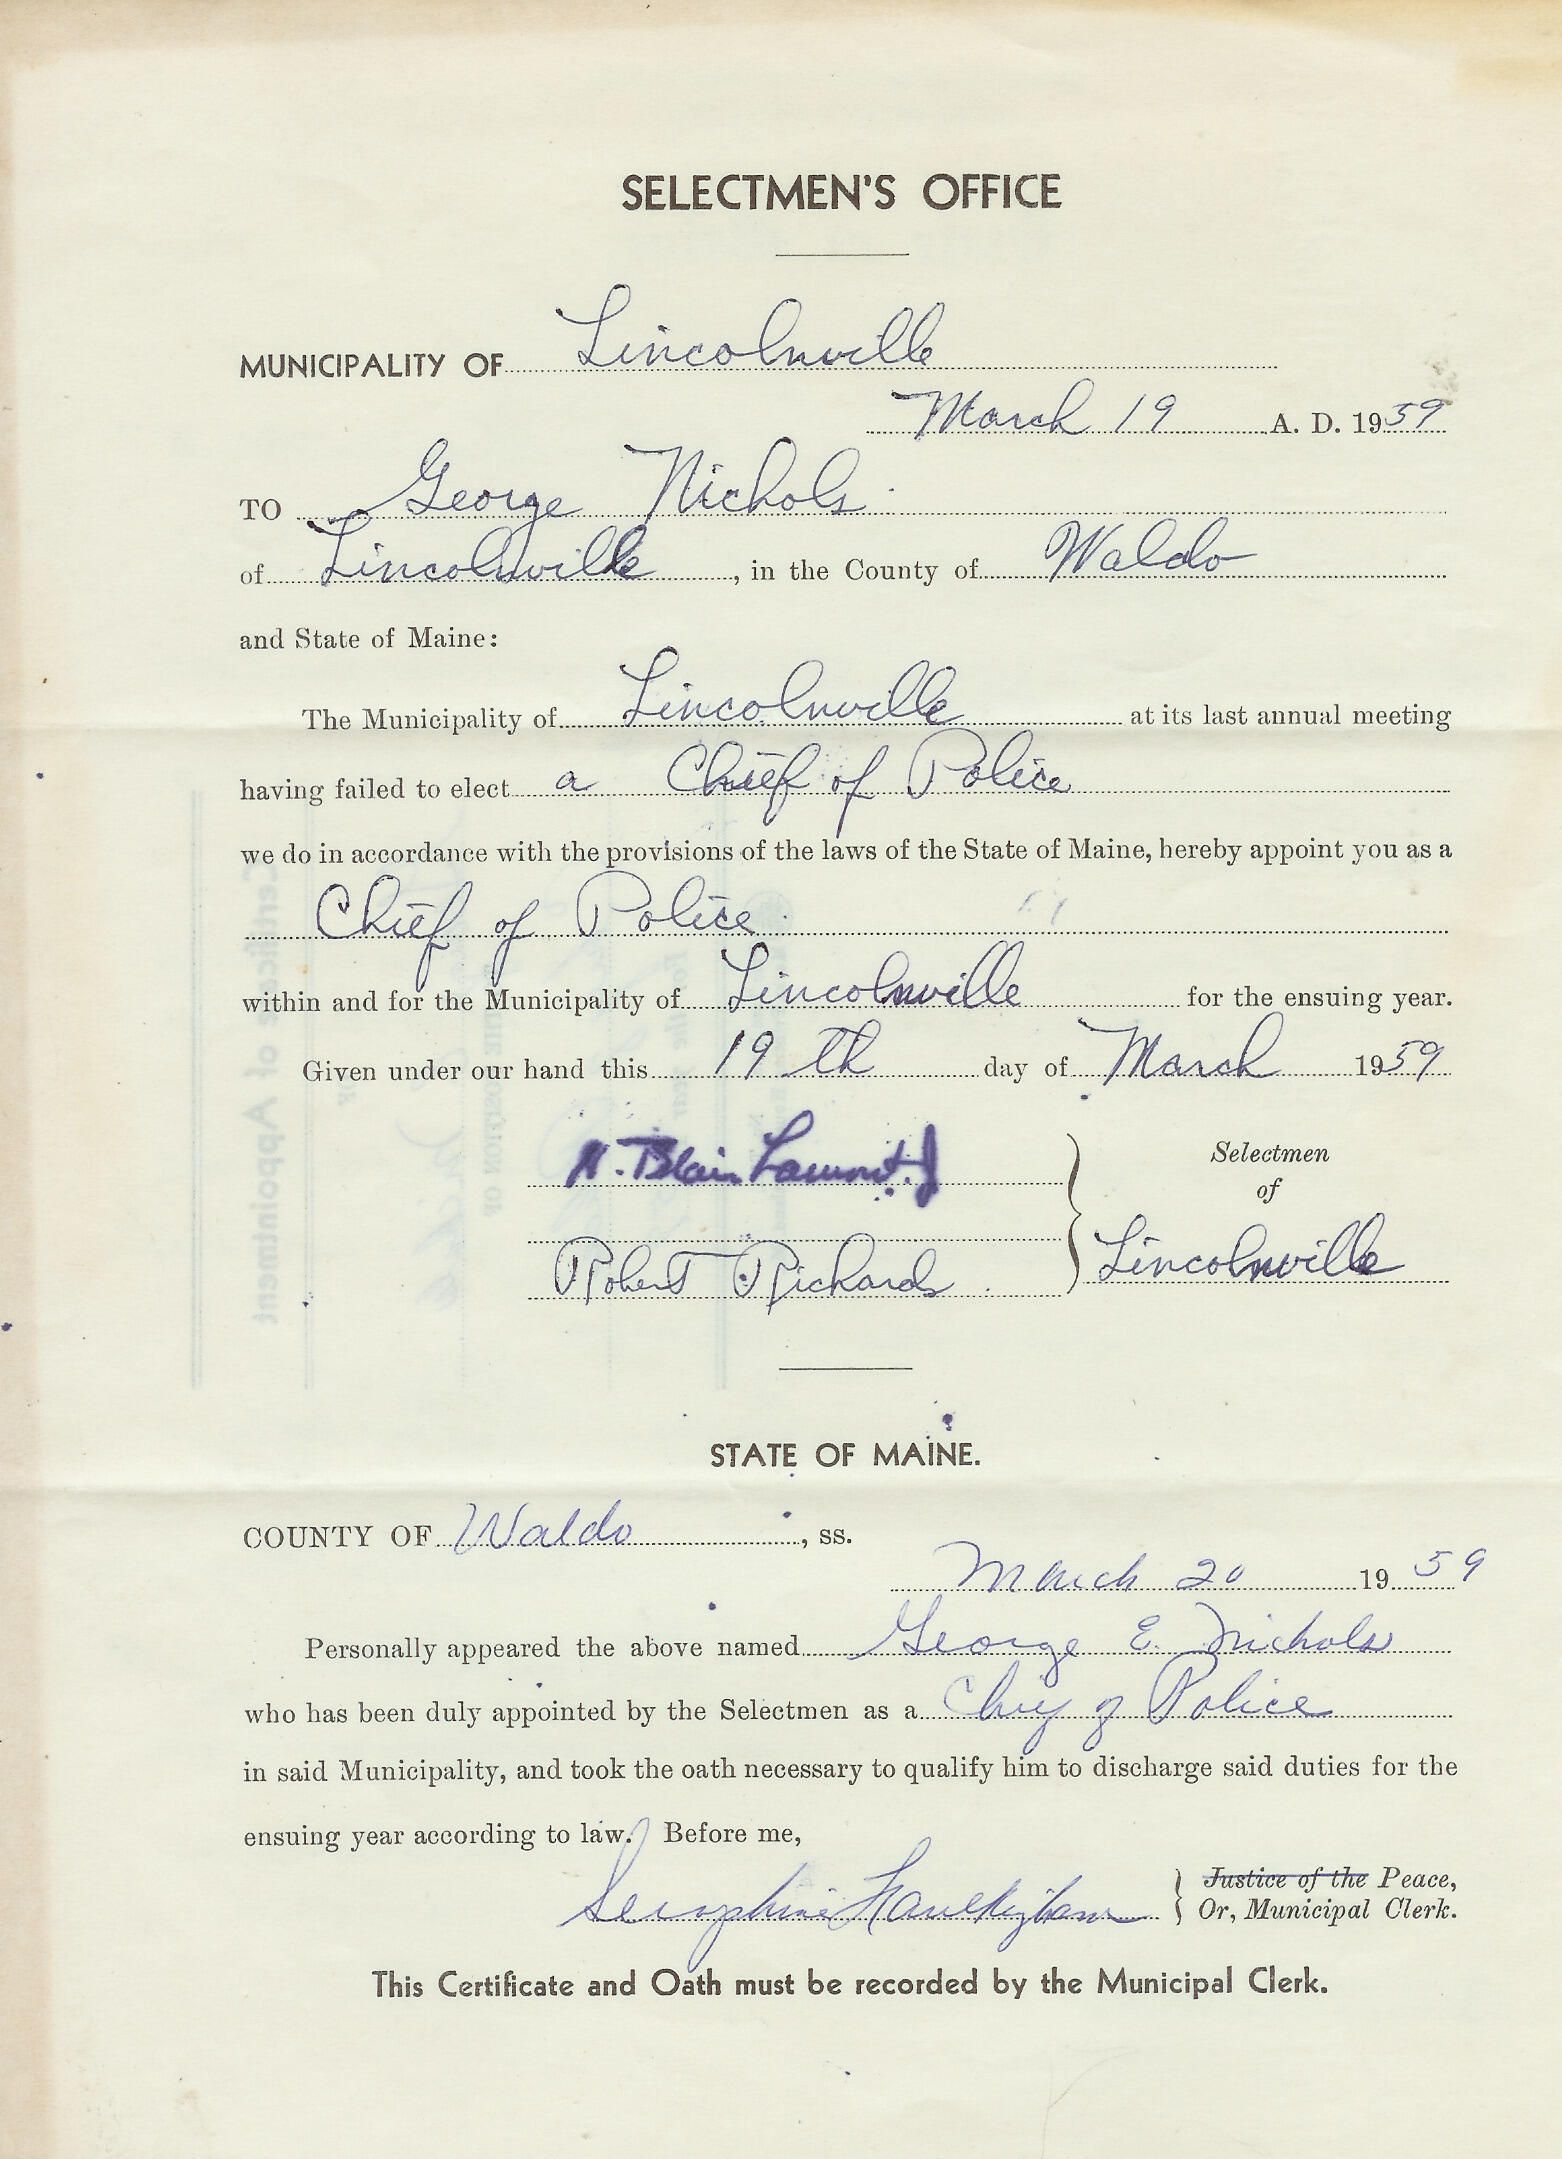 SELECTMEN'S OFFICE
MUNICIPALITY OF Lincolnville
March 19 A. D. 1959
TO George Nichols
of Lincolnville, in the County of Waldo
and State of Maine:
The Municipality of Lincolnville at its last annual meeting
having failed to elect a Chief of Police
we do in accordance with the provisions of the laws of the State of Maine, hereby appoint you as a
Chief of Police
within and for the Municipality of Lincolnville for the ensuing year.
Given under our hand this 19th day of March 1959
Blair Lamont
Selectmen
of
Robert Richards
Lincolnville
STATE OF MAINE.
COUNTY OF Waldo, ss.
March 20 1959
Personally appeared the above named George E. Nichols
who has been duly appointed by the Selectmen as a Chief of Police
in said Municipality, and took the oath necessary to qualify him to discharge said duties for the
ensuing year according to law. Before me,
Justice of the Peace,
Seraphine Or, Municipal Clerk.
This Certificate and Oath must be recorded by the Municipal Clerk.